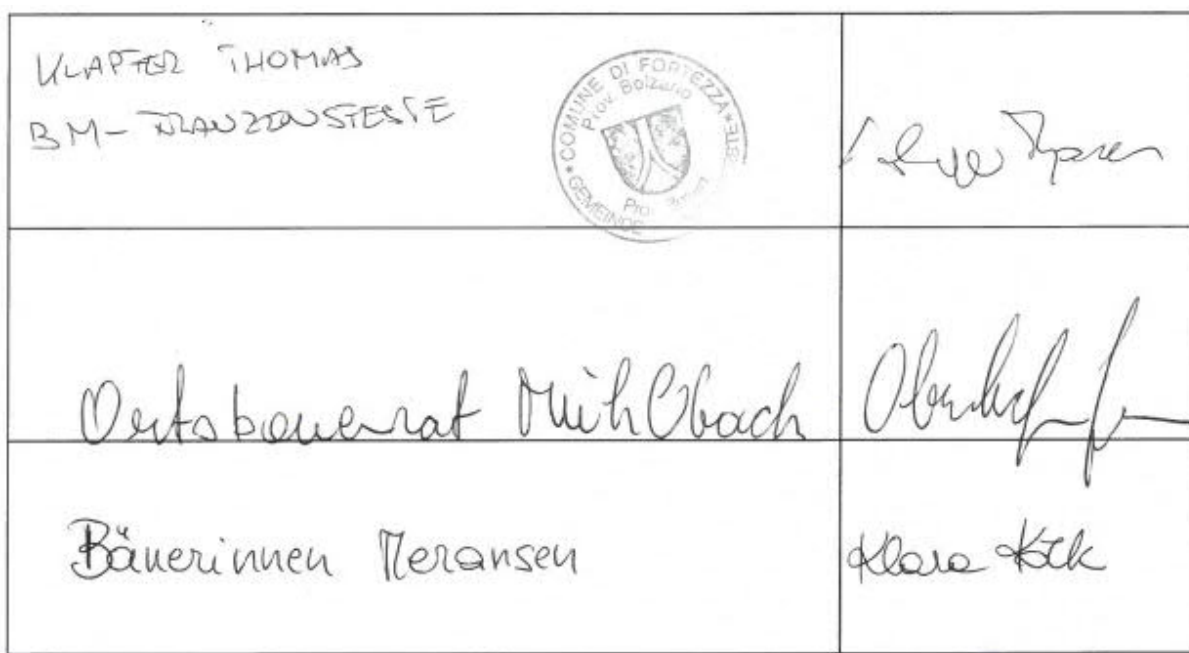 KLAPFER THOMAS
BM-FRANZENSFESTE
COMUNE DI FORTEZZA
Prov. Bolzano
GEMEINDE
Ortsbauernrat Mühlbach
Bäuerinnen Meransen
Klara